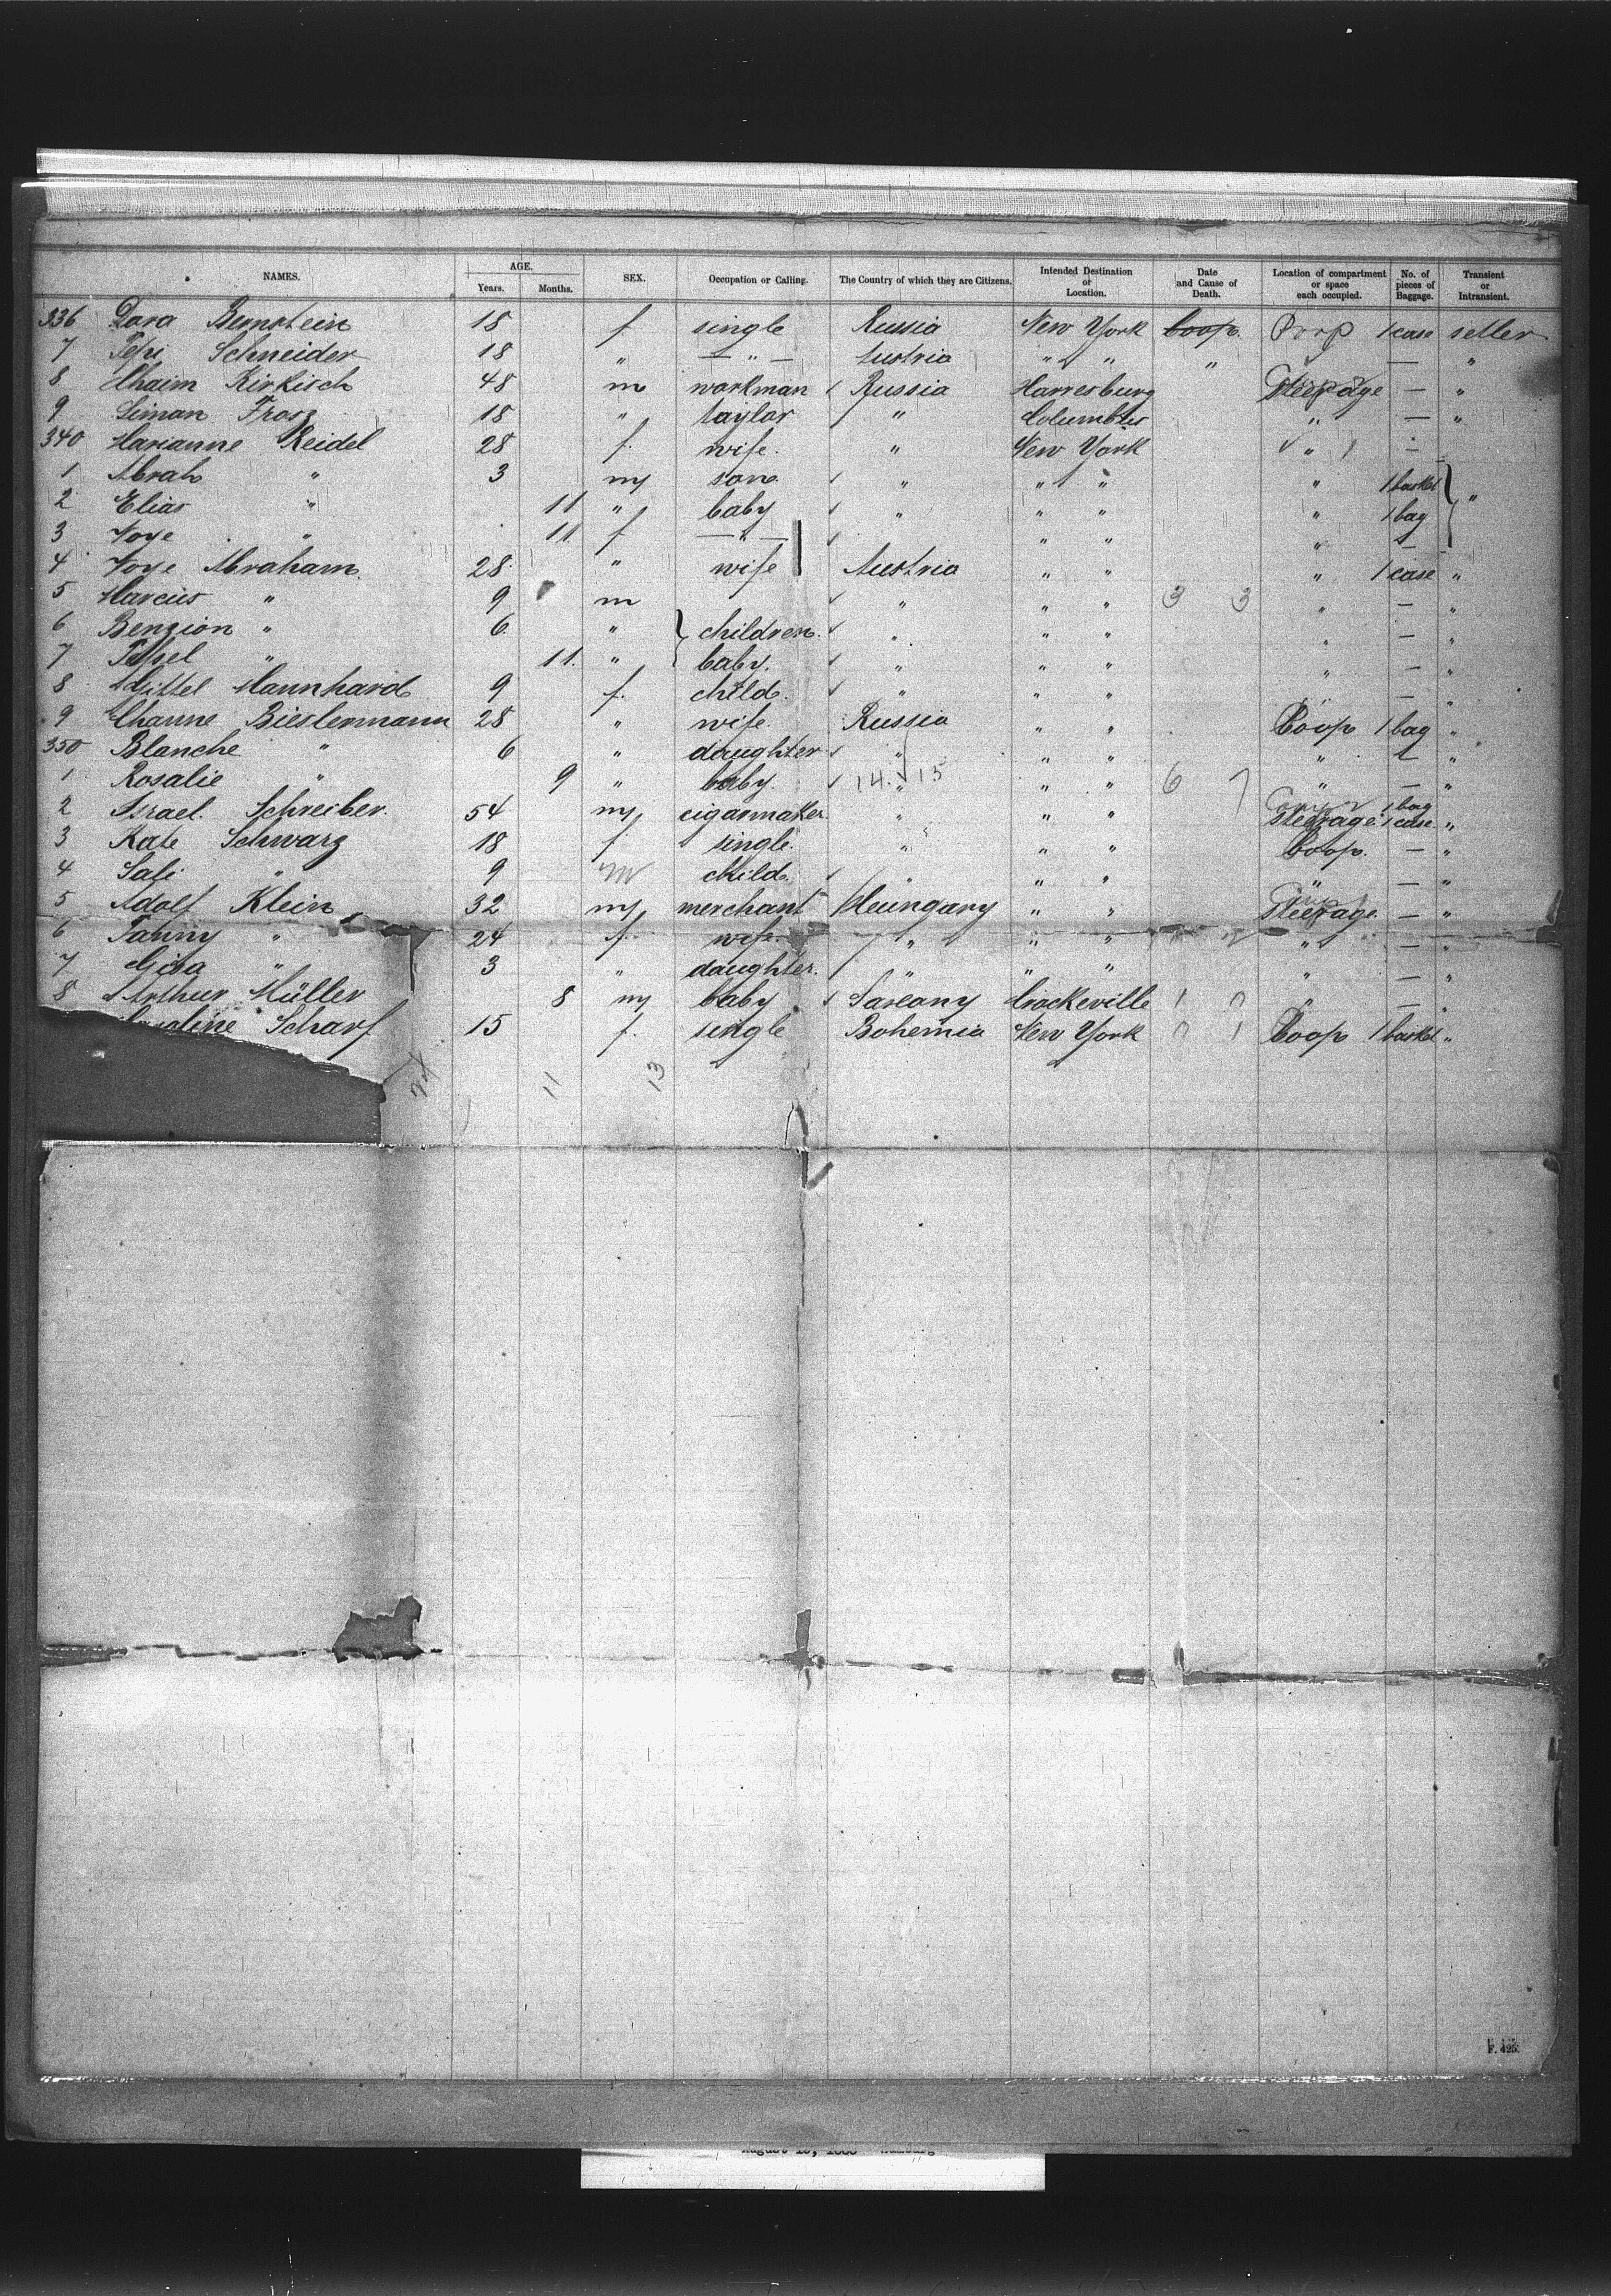 NAMES. AGE. Years. Months. SEX. Occupation or Calling. The Country of which they are Citizens. Intended Destination or Location. Date and Cause of Death. Location of compartment or space each occupied. No. of pieces of Baggage. Transient or Intransient.
336 Dora Bernstein 18 f single Russia New York Coop. Poop 1 case settler
7 Pepi Schneider 18 " — " — Austria " " " — "
8 Chaim Kirkisch 48 m workman Russia Harresburg Steerage — "
9 Siman Frosz 18 " taylor " Columbus " — "
340 Marianne Reidel 28 f. wife. " New York " —
1 Abrah " 3 m son " " " " 1 basket
2 Elias " 11 " baby " " " " 1 bag "
3 Voye " 11. f — " — " " " " —
4 Voye Abraham. 28. " wife Austria " " " 1 case "
5 Marcus " 9 m " " " 3 3 " — "
6 Benzion " 6. " children. " " " " — "
7 " 11. " baby. " " " " — "
8 Gittel Mannhard 9 f. child. " " " — "
9 Channe Biestermann 28 " wife. Russia " " Coop 1 bag "
350 Blanche " 6 " daughter " " " " — "
1 Rosalie " 9 " baby. 14. 15 " " " 6 7 " — "
2 Israel Schreiber. 54 m cigarmaker. " " " Steerage 1 bag 1 case. "
3 Kate Schwarz 18 f single. " " " Coop. — "
4 Sali " 9 m child. " " " " — "
5 Adolf Klein 32 m merchant Hungary " " Steerage. — "
6 Fanny " 24 f. wife. " " " " — "
7 Gisa " 3 " daughter. " " " " — "
8 Arthur Müller 8 m baby Saxony Crockeville 1 0 " — "
Scharf 15 f. single Bohemia New York 0 1 Coop 1 basket "
11 13
F. 425.